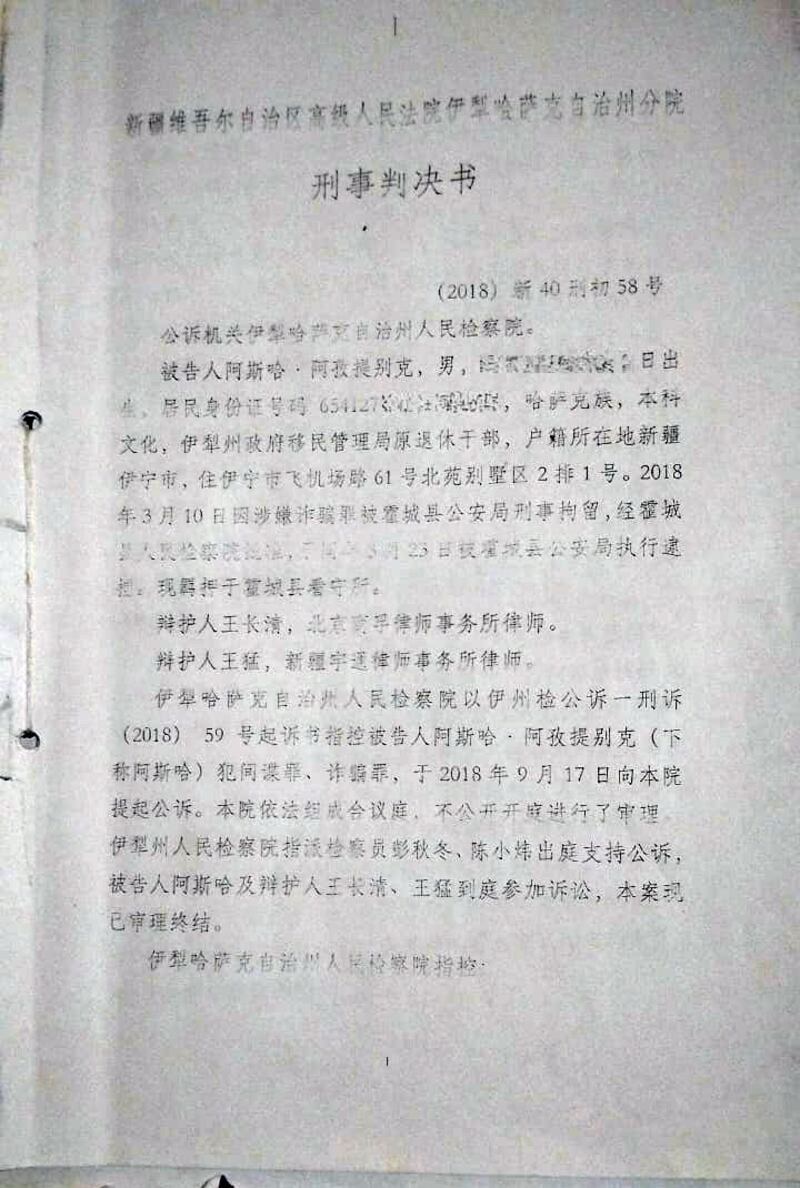 新疆维吾尔自治区高级人民法院伊犁哈萨克自治州分院
刑事判决书
(2018) 新 40 刑初 58 号
公诉机关伊犁哈萨克自治州人民检察院。
被告人阿斯哈·阿孜提别克，男，日出
生，居民身份证号码 654127，哈萨克族，本科
文化，伊犁州政府移民管理局原退休干部，户籍所在地新疆
伊宁市，住伊宁市飞机场路 61 号北苑别墅区 2 排 1 号。2018
年 3 月 10 日因涉嫌诈骗罪被霍城县公安局刑事拘留，经霍城
县人民检察院批准，于同年 3 月 23 日被霍城县公安局执行逮
捕。现羁押于霍城县看守所。
辩护人王长清，北京律师事务所律师。
辩护人王猛，新疆宇通律师事务所律师。
伊犁哈萨克自治州人民检察院以伊州检公诉一刑诉
(2018) 59 号起诉书指控被告人阿斯哈·阿孜提别克（下
称阿斯哈）犯间谍罪、诈骗罪，于 2018 年 9 月 17 日向本院
提起公诉。本院依法组成合议庭，不公开开庭进行了审理
伊犁州人民检察院指派检察员彭秋冬、陈小炜出庭支持公诉，
被告人阿斯哈及辩护人王长清、王猛到庭参加诉讼，本案现
已审理终结。
伊犁哈萨克自治州人民检察院指控
1